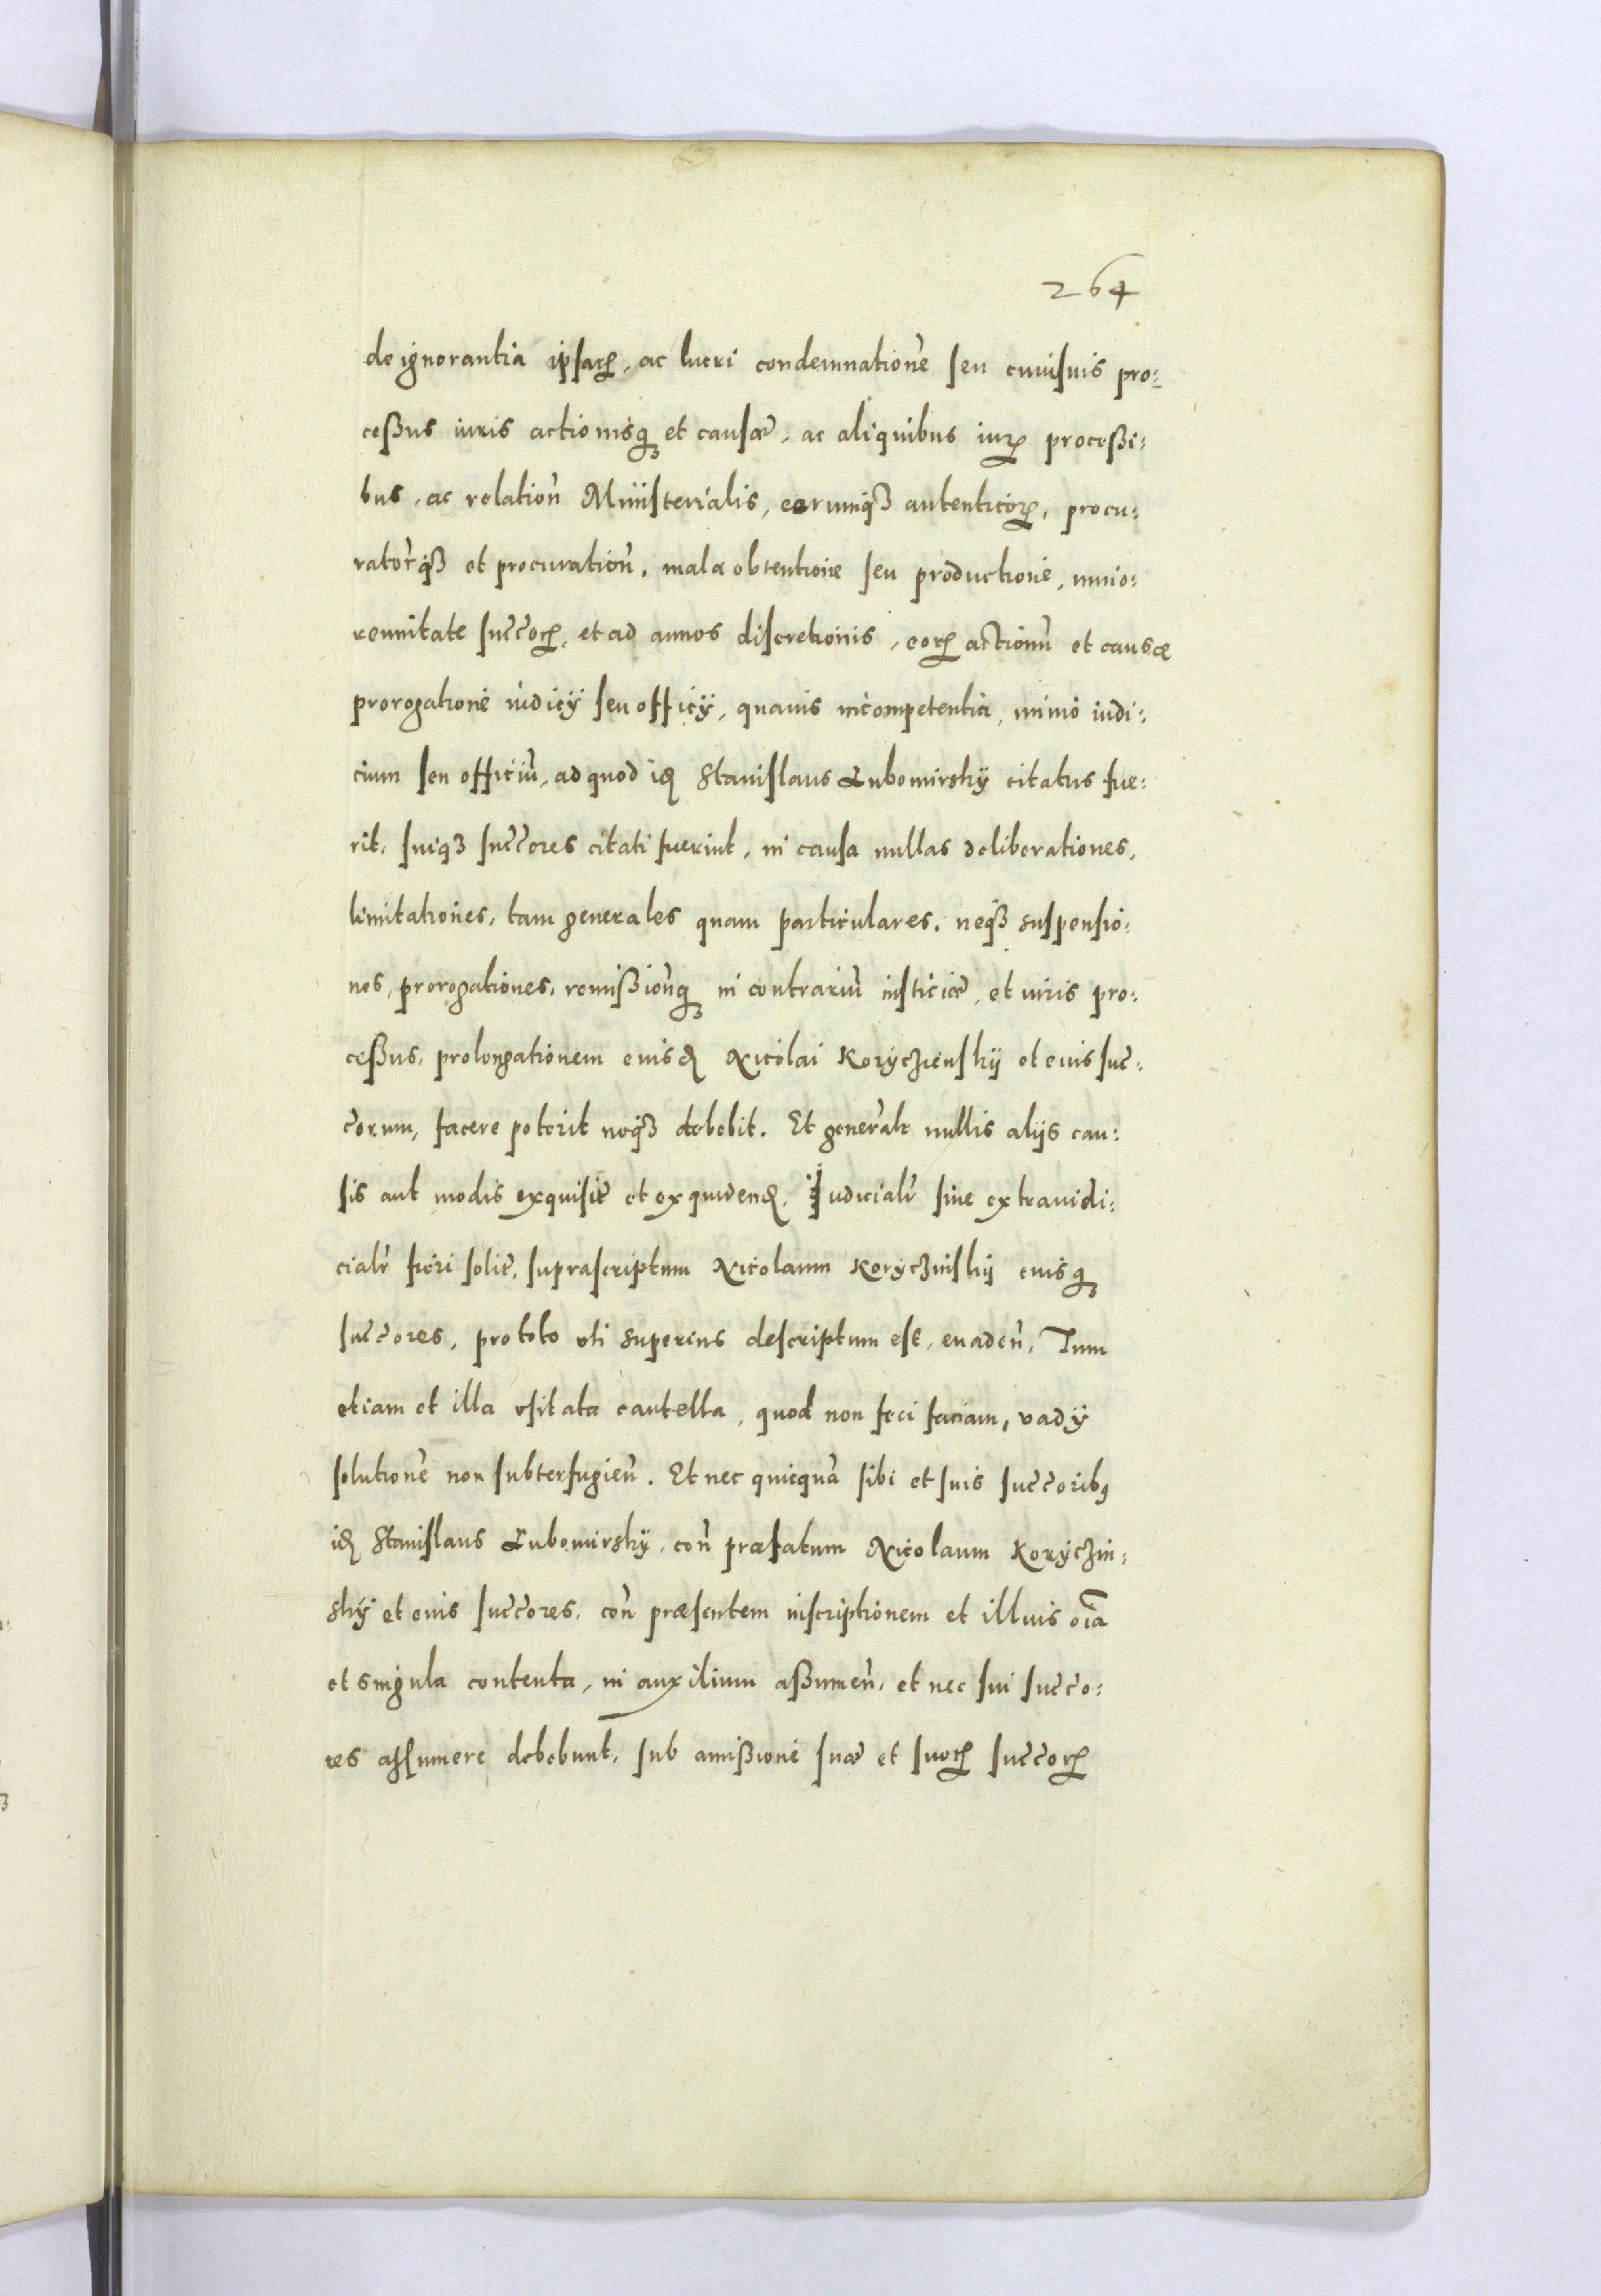 264
de ignorantia ipsaꝝ, ac lucri condemnatione᷑ seu cuiusuis pro:
cessus iuris actionisq̨ et causæ, ac aliquibus iurꝝ processi:
bus, ac relation̄ Ministerialis, earumqꝫ autenticoꝝ, procu:
rator̄qꝫ et procuration̄, mala obtentione seu productione, mino:
rennitate succ̄oꝝ, et ad annos discretionis, eoꝝ actionū et causæ
prorogatione iudicÿ seu officÿ, quauis incompetentia, nimio iudi:
cium seu officiū, ad quod idꝫ Stanislaus Lubomirskÿ citatus fue:
rit, suiqꝫ succ̄ores citati fuerint, in causa nullas deliberationes,
limitationes, tam generales quam particulares, neqꝫ suspensio:
nes, prorogationes, remission̄q̨ in contrariū iusticiæ, et iuris pro:
cessus, prolongationem eiusdꝫ Nicolai Korÿczienskÿ et eius suc̄:
c̄orum, facere poterit neqꝫ debebit. Et general̄r nullis alÿs cau:
sis aut modis exquisit̄ et exquirendꝫ, iudicialr̄ siue extraiudi:
cialr̄ fieri solit̄, suprascriptum Nicolaum Korÿczinskÿ eiusq̨
succ̄ores, pro toto vti superius descriptum est, euaden̄. Tum
etiam et illa vsitata cautella, quod non feci faciam, vadÿ
solutionē non subterfugien̄. Et nec quicquā sibi et suis succ̄oribꝰ
idꝫ Stanislaus Lubomirskÿ, con̄ præfatum Nicolaum Korÿczin:
skÿ et eius succ̄ores, con̄ præsentem inscriptionem et illius oīa
et singula contenta, in auxilium assumen̄, et nec sui succ̄o:
res assumere debebunt, sub amissione suæ et suoꝝ succ̄oꝝ